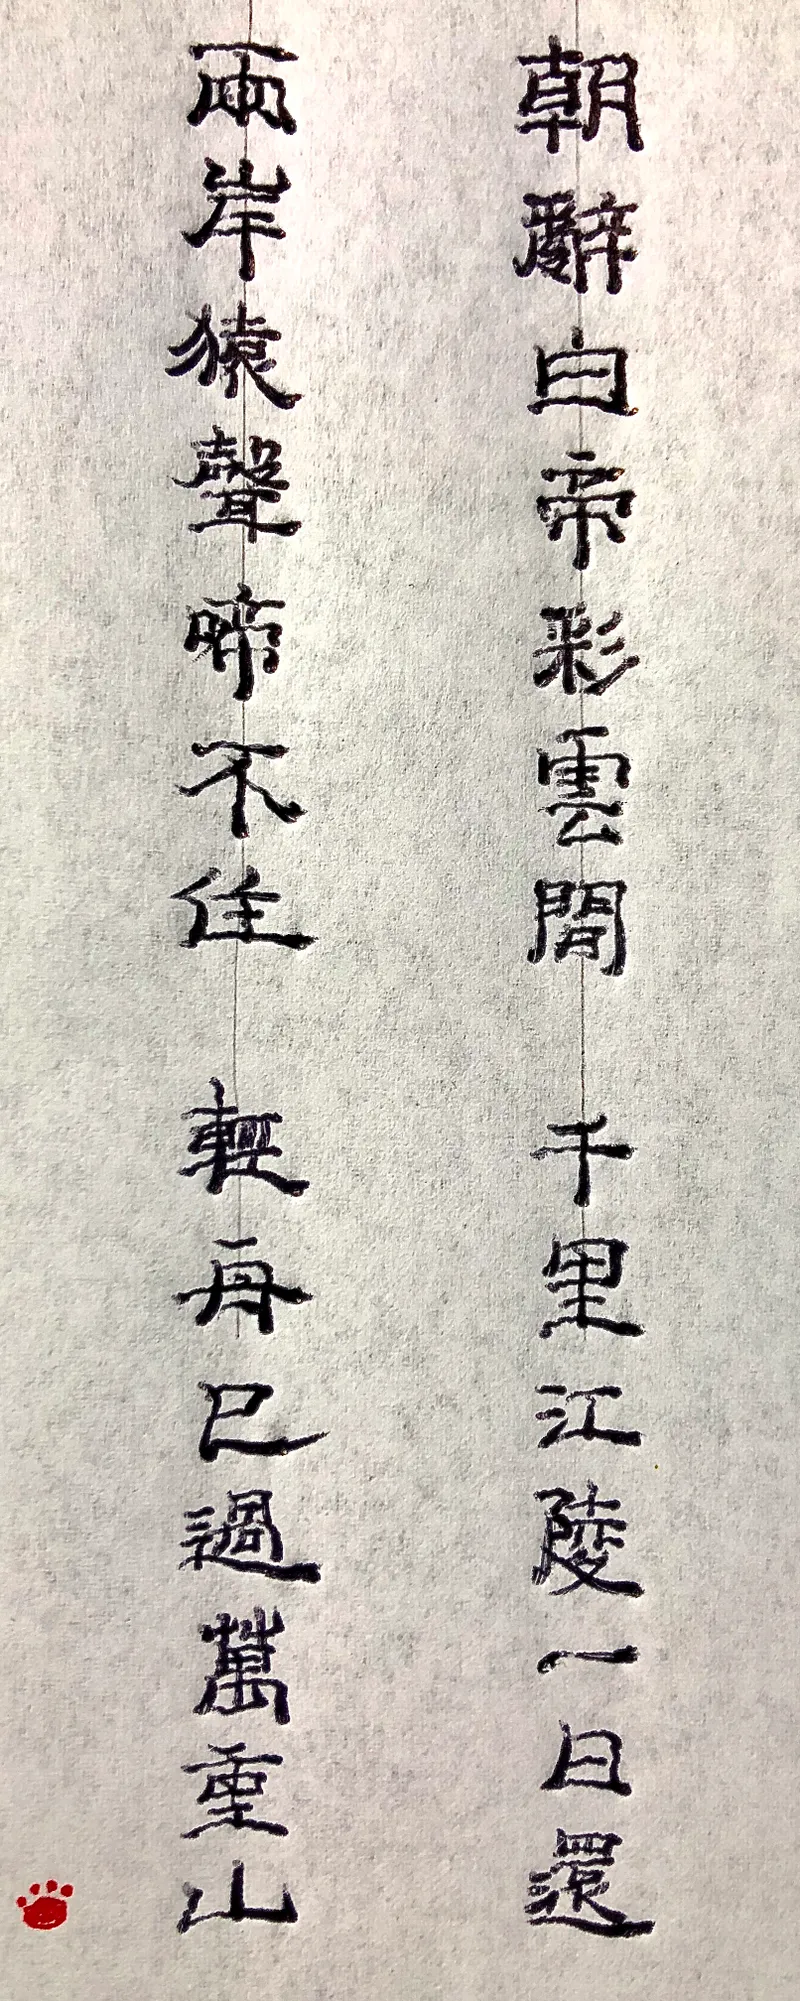 朝辭白帝彩雲間 千里江陵一日還
兩岸猿聲啼不住 輕舟已過萬重山